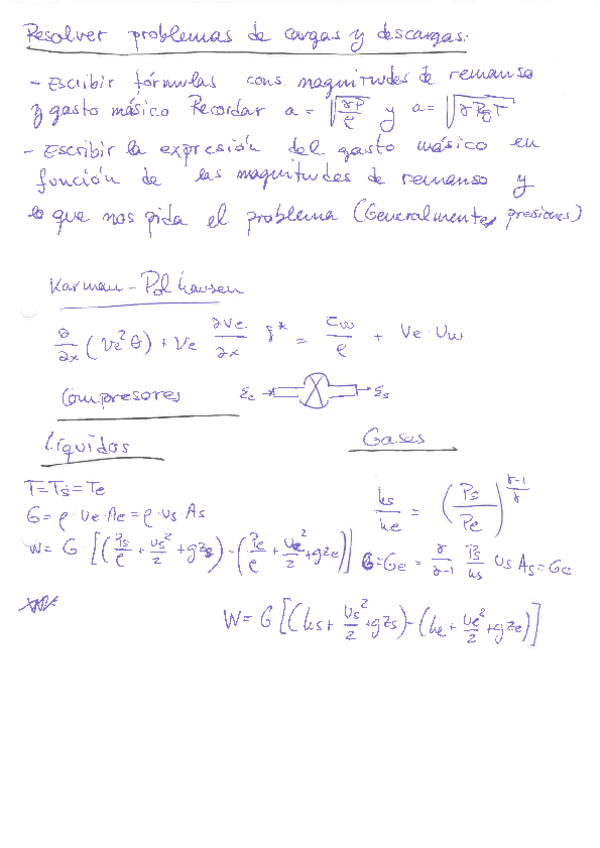 Resolver problemas de cargas y descargas.
- Escribir fórmulas cons. magnitudes de remanso
y gasto másico Recordar a = √(γP/ρ) y a = √(γRgT)
- Escribir la expresión del gasto másico en
función de las magnitudes de remanso y
lo que nos pida el problema (Generalmente, presiones)
Karman - Polhausen
∂/∂x (Ve²θ) + Ve ∂Ve/∂x δ* = τw/ρ + Ve·Vw
Compresores Ec Es
Líquidos Gases
T = Ts = Te
G = ρ·ve·Ae = ρ·vs·As
hs/he = (Ps/Pe)^((γ-1)/γ)
W = G [(Ps/ρ + vs²/2 + gzs) - (Pe/ρ + ve²/2 + gze)]
G = Ge = γ/(γ-1) Ps/hs vs As = Ge
W = G [(hs + vs²/2 + gzs) - (he + ve²/2 + gze)]